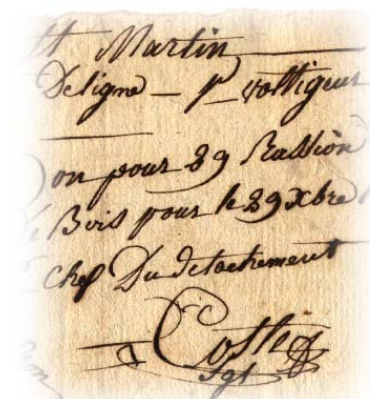 St Martin
De ligne _ P. voltigeur
Bon pour 29 Rassion
De Bois pour le 29 xbre
Chef Du detachement
Sgt